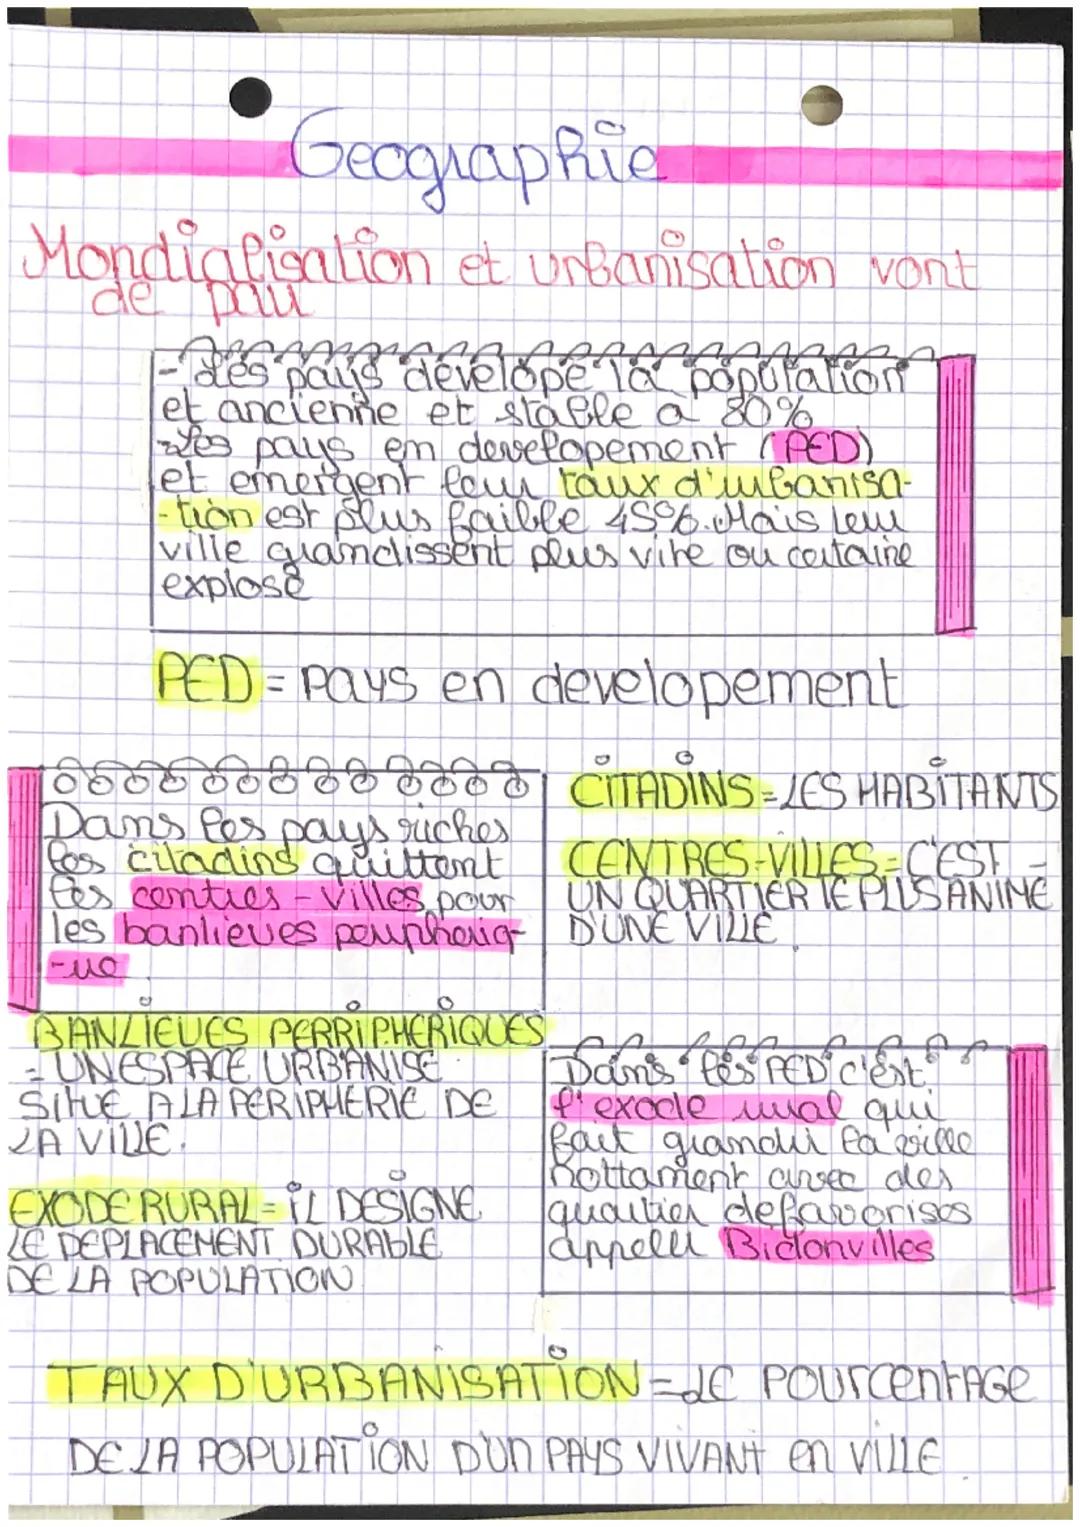 Geographie
Mondialisation et urbanisation vont
de pair
- Les pays develope la population
et ancienne et stable a 80%
- Les pays en developement (PED)
et emergent leur taux d'urbanisa-
-tion est plus faible 45%. Mais leur
ville grandissent plus vite ou certaine
explose
PED = pays en developement
Dans les pays riches
les citadins quittent
les centres - villes pour
les banlieues peripheriq-
-ue.
CITADINS = LES HABITANTS
CENTRES-VILLES = C'EST -
UN QUARTIER LE PLUS ANIME
D'UNE VILLE.
BANLIEUES PERRIPHERIQUES
= UN ESPACE URBANISE
SITUE A LA PERIPHERIE DE
LA VILLE.
EXODE RURAL = IL DESIGNE
LE DEPLACEMENT DURABLE
DE LA POPULATION
Dans les PED c'est
l'exode rural qui
fait grandir la ville
nottament avec des
quartier defavorises
appeler Bidonvilles
TAUX D'URBANISATION = LE POURCENTAGE
DE LA POPULATION D'UN PAYS VIVANT en VILLE.